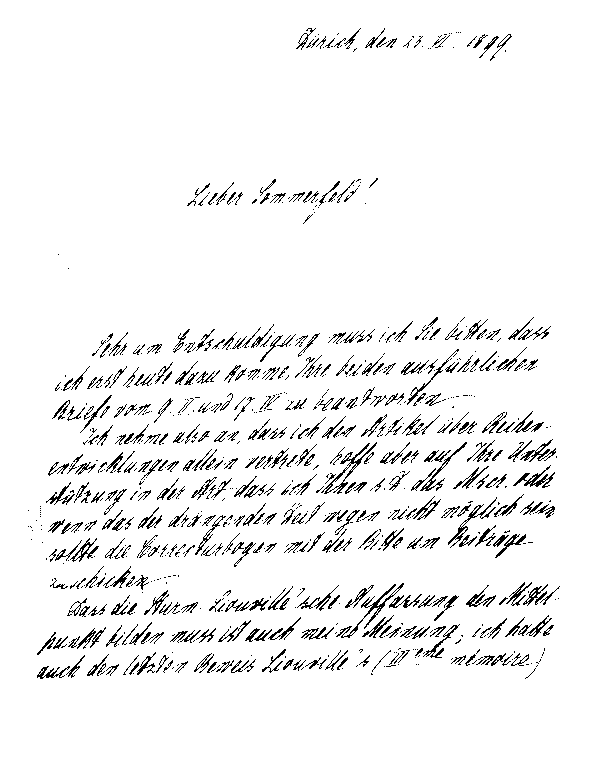 Zürich, den 23. VI. 1899.
Lieber Sommerfeld!
Sehr um Entschuldigung muss ich Sie bitten, dass
ich erst heute dazu komme, Ihre beiden ausführlichen
Briefe vom 9. V. und 17. VI. zu beantworten.
Ich nehme also an, dass ich den Artikel über Reihen-
entwicklungen allein vertrete, hoffe aber auf Ihre Unter-
stützung in der Art, dass ich Ihnen s. Z. das Mscr. oder
wenn das der drängenden Zeit wegen nicht möglich sein
sollte die Correcturbogen mit der Bitte um Beiträge
zuschicke.
Dass die Sturm-Liouville'sche Auffassung den Mittel-
punkt bilden muss ist auch meine Meinung; ich hatte
auch den letzten Beweis Liouville's (III eme mémoire)